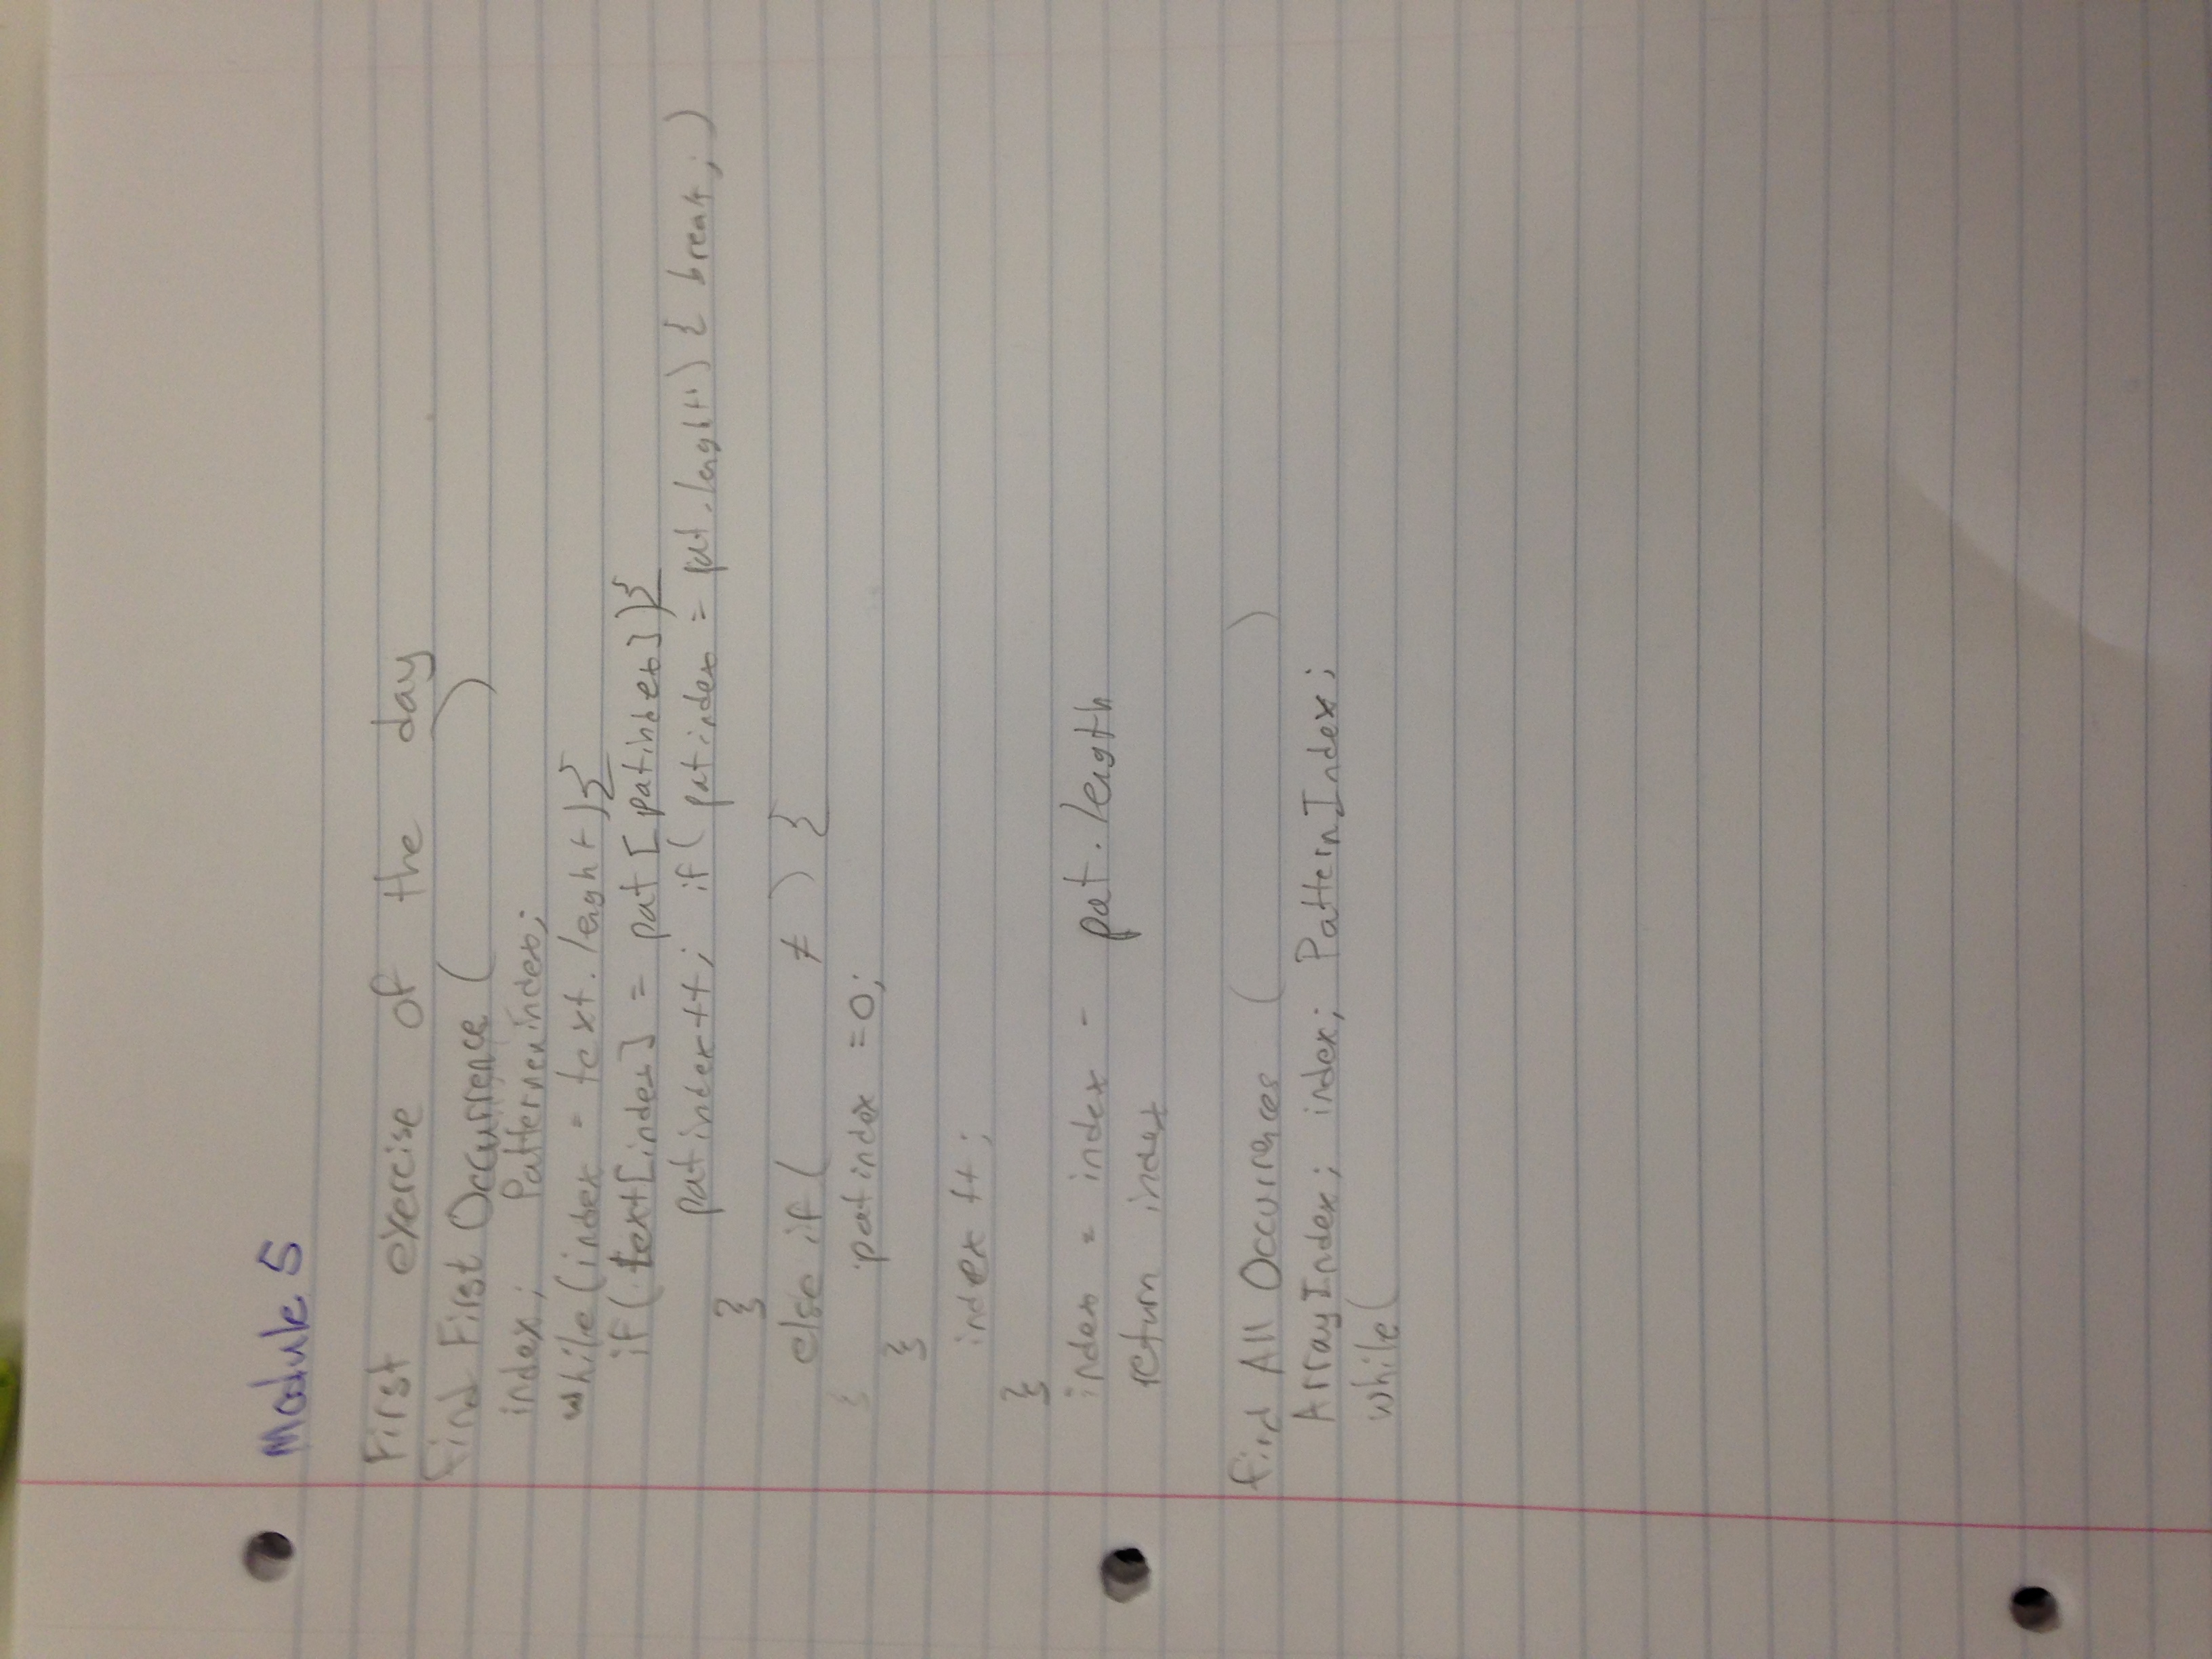 Module 5
First exercise of the day
find First Occurrence ( )
index; Patternenindex;
while (index = text.lenght){
if( text[index] = pat [patindex]){
patindex++; if( patindex = pat.lenght) { break; )
}
else if ( ≠ ) {
patindex =0;
}
index ++;
}
index = index - pat.length
return index
find All Occurrences ( )
ArrayIndex; index; PatternIndex;
while(